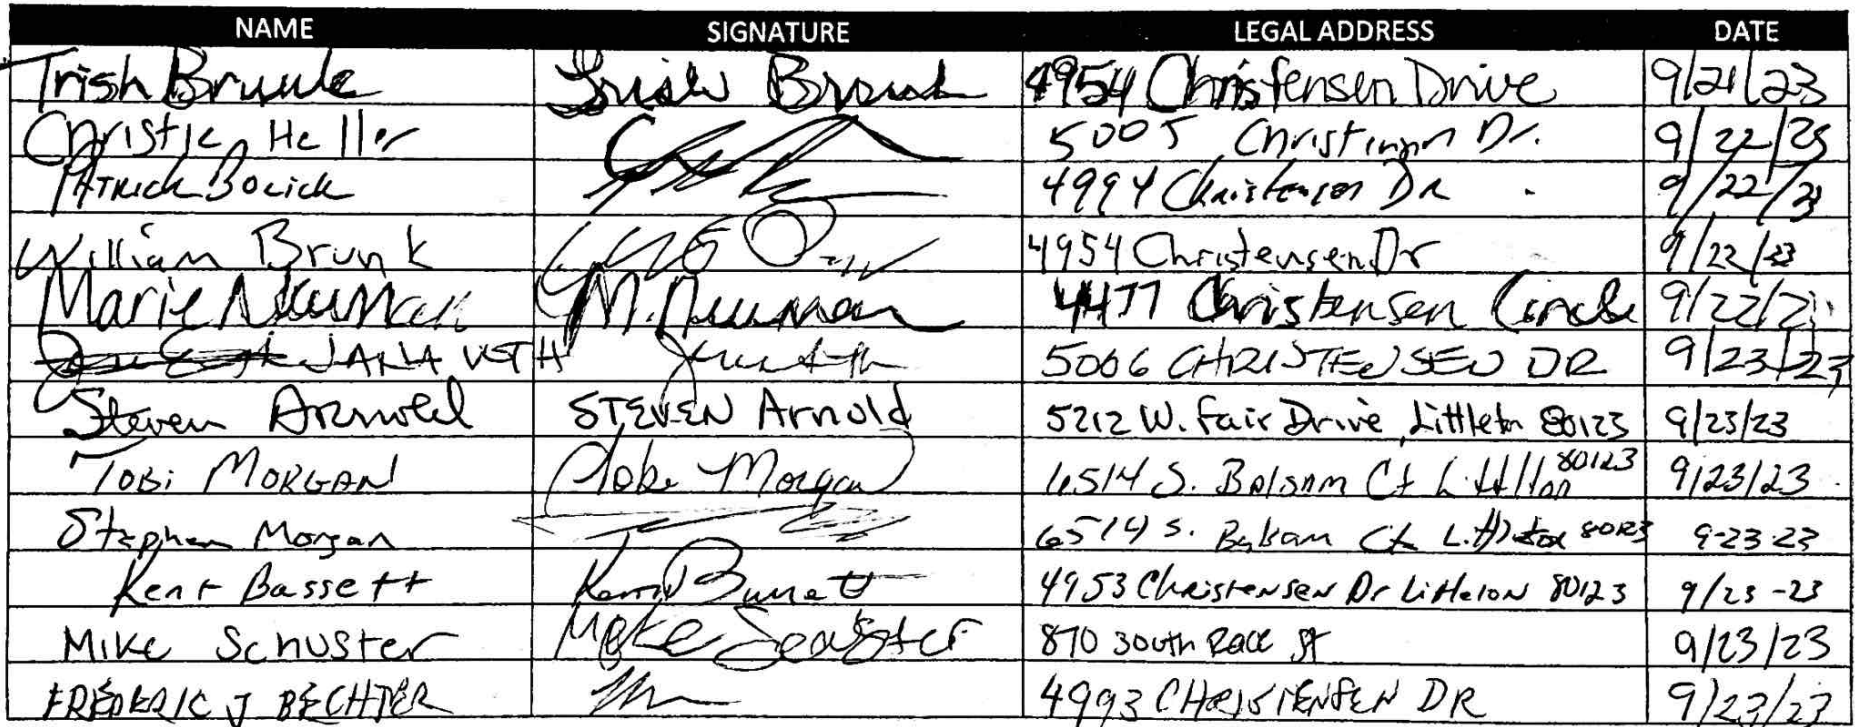 NAME SIGNATURE LEGAL ADDRESS DATE
Trish Brunk Trish Brunk 4954 Christensen Drive 9/21/23
Christie Heller 5005 Dr. 9/22/23
PATRICK BOLICK 4994 Christensen DR 9/22/23
William Brunk 4954 Christensen Dr 9/22/23
Marie Neuman M. Neuman 4477 Christensen Circle 9/22/
JANA VETH 5006 CHRISTENSEN DR 9/23/23
Steven Arnold STEVEN Arnold 5212 W. Fair Drive, Littleton 80123 9/23/23
TOBi MORGAN Tobi Morgan 6514 S. Balsam Ct Littleton 80123 9/23/23
Stephen Morgan 6514 S. Balsam Ct Littleton 80123 9-23-23
Kent Bassett 4953 Christensen Dr Littleton 80123 9/23-23
Mike Schuster Mike 870 South Race St 9/23/23
FREDERIC J BECHTER 4993 CHRISTENSEN DR 9/23/23